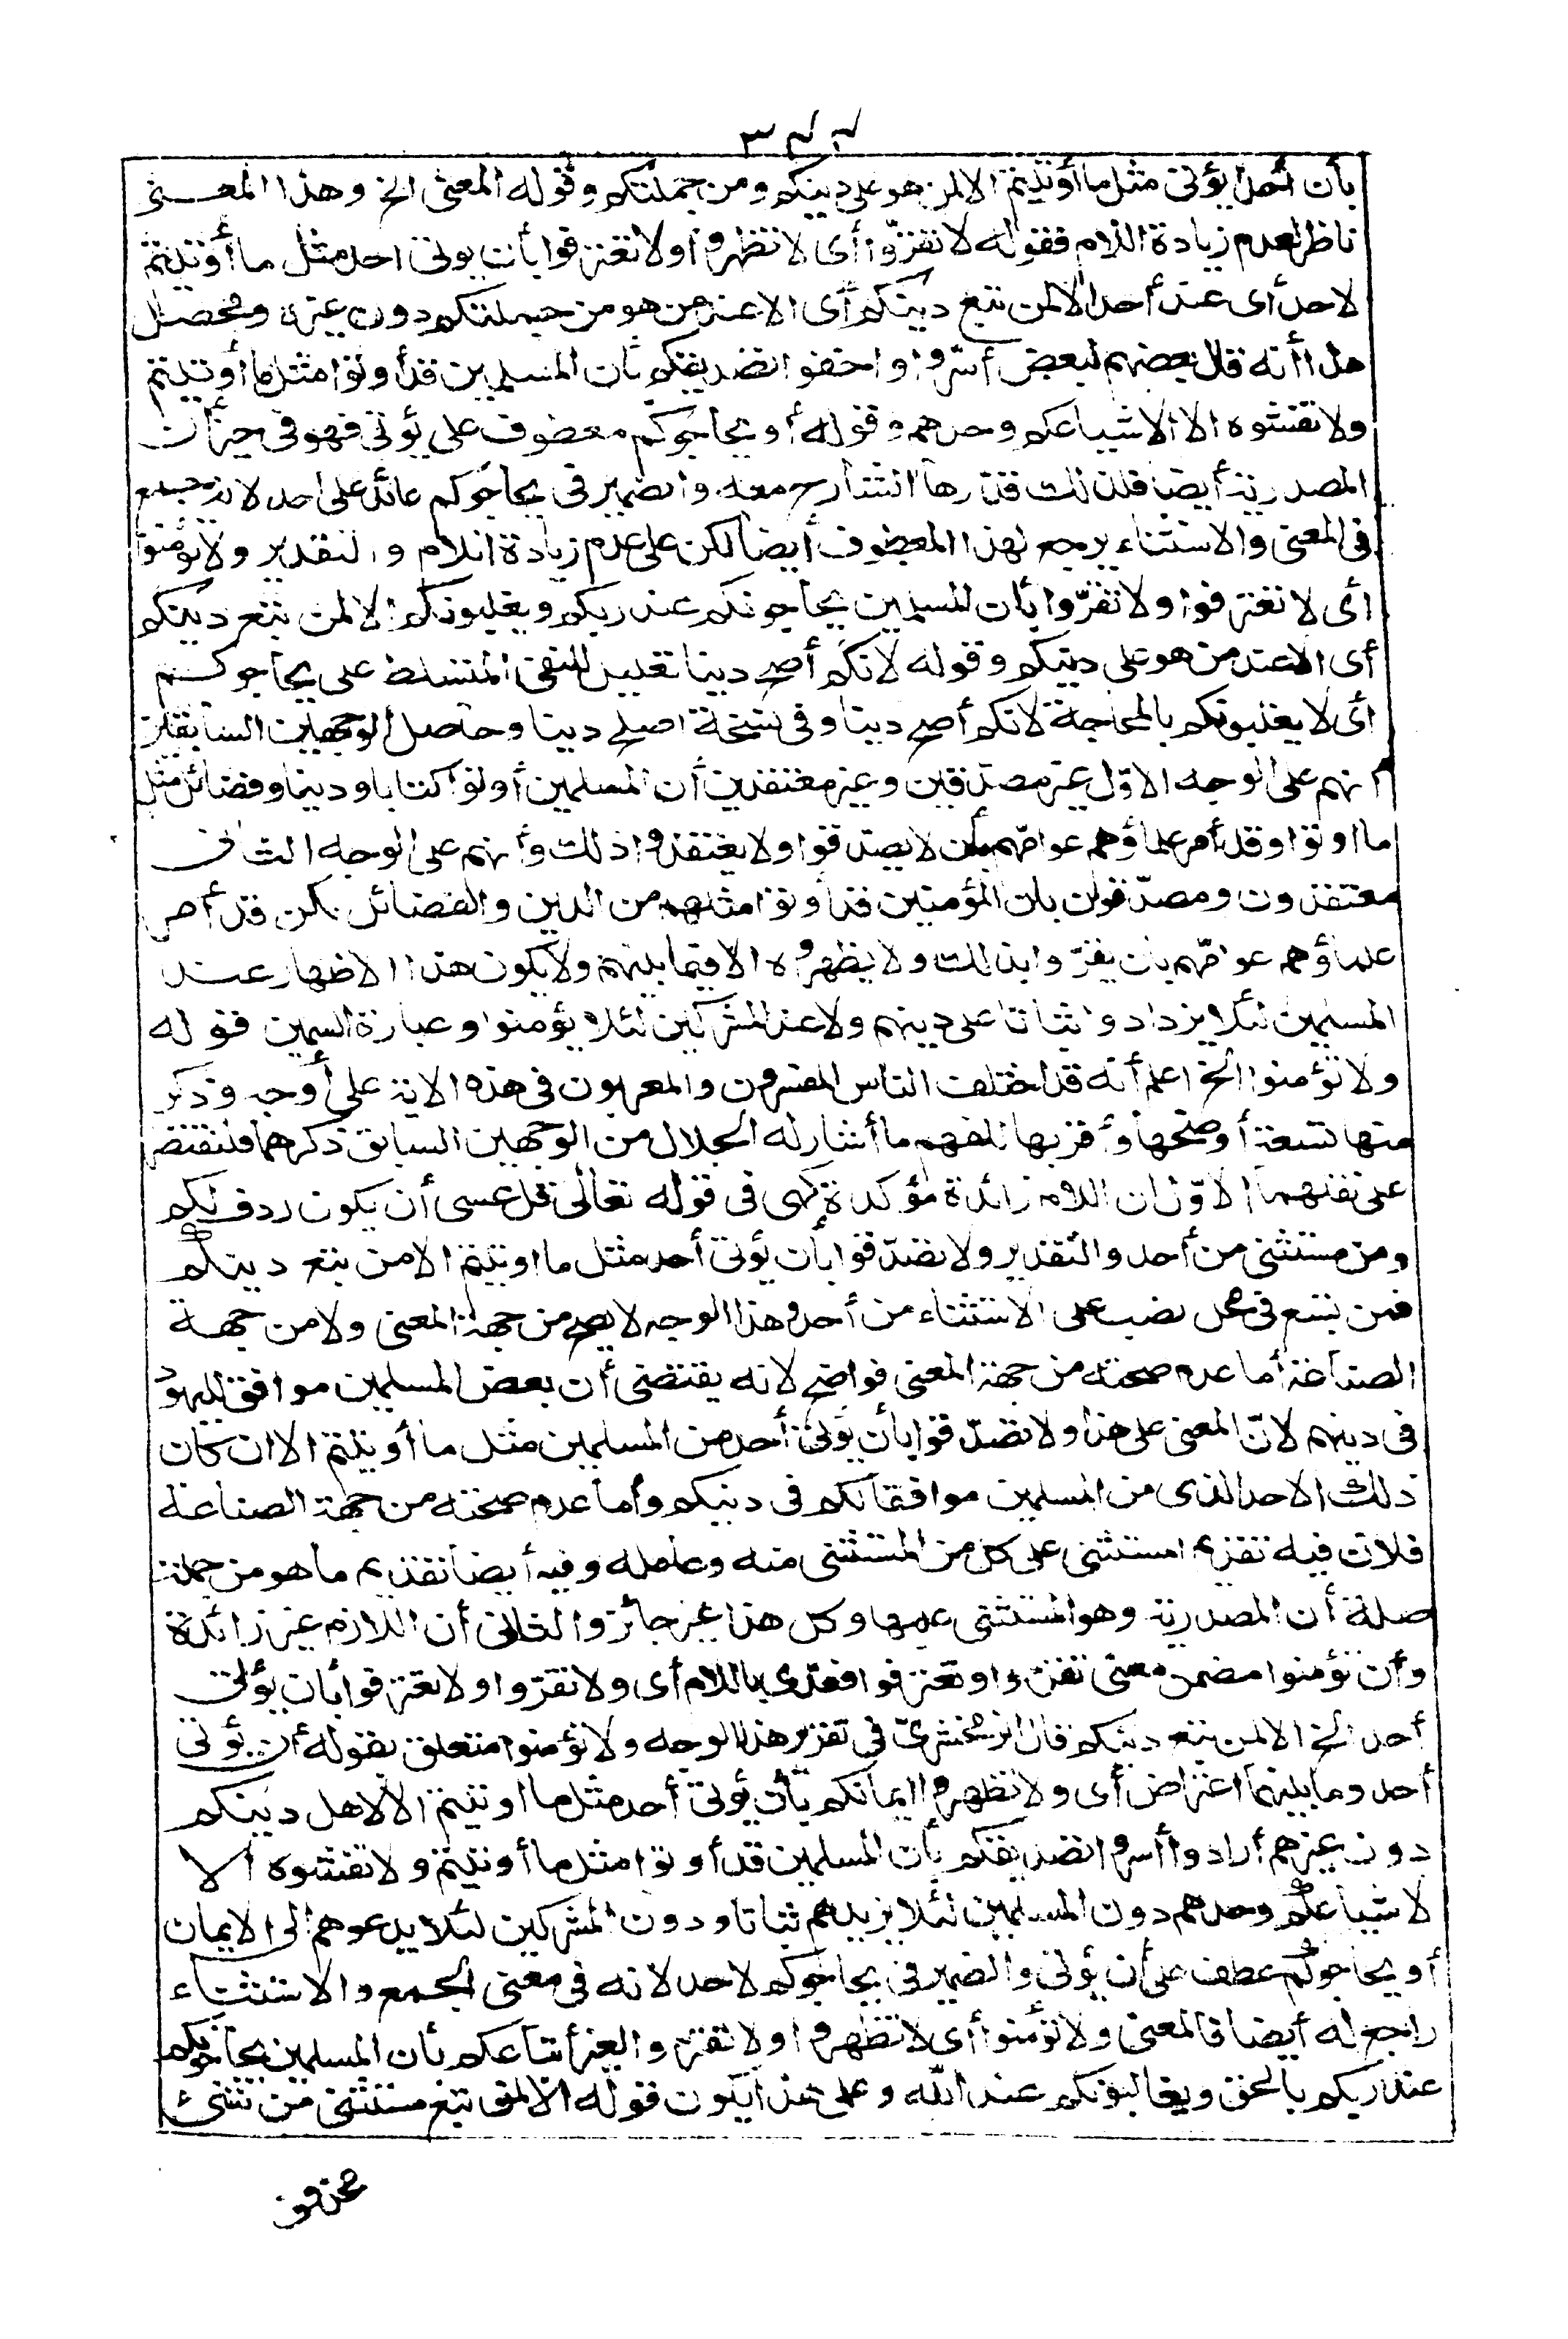 ٣٤٤
بأن أحدا يؤتى مثل ما أوتيتم الا لمن هو على دينكم ومن جملتكم وقوله المعنى الخ وهذا المعنى
ناظر لعدم زيادة اللام فقوله لا تقروا أى لا تظهروا أو لا تعترفوا بأن يوتى احد مثل ما أوتيتم
لاحد أى عند أحد الا لمن تبع دينكم أى الا عند من هو من جملتكم دون غيره ومحصل
هذا أنه قال بعضهم لبعض أسروا واخفوا تصديقكم بأن المسلمين قد أوتوا مثل ما أوتيتم
ولا تفشوه الا لاشياعكم وحدهم وقوله أو يحاجوكم معطوف على يؤتى فهو فى حيز أن
المصدرية أيضا فلذلك قدرها الشارح معه والضمير فى يحاجوكم عائد على احد لانه جمع
فى المعنى والاستثناء يرجع لهذا المعطوف أيضا لكن على عدم زيادة اللام والتقدير ولا تؤمنوا
أى لا تعترفوا ولا تقروا بأن المسلمين يحاجونكم عند ربكم ويغلبونكم الا لمن تبع دينكم
أى الا عند من هو على دينكم وقوله لانكم أصح دينا تعليل للنفى المتسلط على يحاجوكم
أى لا يغلبونكم بالمحاجة لانكم أصح دينا وفى نسخة اصلح دينا وحاصل الوجهين السابقين
انهم على الوجه الاوّل غير مصدقين وغير معتقدين أن المسلمين أوتوا كتابا ودينا وفضائل مثل
ما اوتوا وقد أمر علماؤهم عوامّهم بأن لا يصدقوا ولا يعتقدوا ذلك وأنهم على الوجه الثانى
معتقدون ومصدّقون بأن المؤمنين قد أوتوا مثلهم من الدين والفضائل لكن قد أمر
علماؤهم عوامّهم بأن يقروا بذلك ولا يظهروه الا فيما بينهم ولا يكون هذا الاظهار عند
المسلمين لئلا يزدادوا ثباتا على دينهم ولا عند المشركين لئلا يؤمنوا وعبارة السمين قوله
ولا تؤمنوا الخ اعلم أنه قد اختلف الناس المفسرون والمعربون فى هذه الاية على أوجه وذكر
منها تسعة أوضحها وأقربها للفهم ما أشار له الجلال من الوجهين السابق ذكرهما فلنقتصر
على نقلهما الاوّل ان اللام زائدة مؤكدة كهى فى قوله تعالى قل عسى أن يكون ردف لكم
ومن مستثنى من أحد والتقدير ولا تصدّقوا بأن يؤتى أحد مثل ما اوتيتم الا من تبع دينكم
فمن تبع فى محل نصب على الاستثناء من أحد وهذا الوجه لا يصح من جهة المعنى ولا من جهة
الصناعة أما عدم صحته من جهة المعنى فواضح لانه يقتضى أن بعض المسلمين موافق لليهود
فى دينهم لانّ المعنى على هذا ولا تصدّقوا بأن يؤتى أحد من المسلمين مثل ما أوتيتم الا ان كان
ذلك الاحد الذى من المسلمين موافقا لكم فى دينكم وأما عدم صحته من جهة الصناعة
فلان فيه تقديم المستثنى على كل من المستثنى منه وعامله وفيه أيضا تقديم ما هو من جملة
صلة أن المصدرية وهو المستثنى عليها وكل هذا غير جائز والثانى أن اللازم غير زائدة
وأن تؤمنوا مضمن معنى تقروا وتعترفوا فعدّى باللام أى ولا تقرّوا ولا تعترفوا بأن يؤتى
أحد الخ الا لمن تبع دينكم قال الزمخشرىّ فى تقرير هذا الوجه ولا تؤمنوا متعلق بقوله أن يؤتى
أحد وما بينهما اعتراض أى ولا تظهروا ايمانكم بأن يؤتى أحد مثل ما اوتيتم الا لاهل دينكم
دون غيرهم أرادوا أسروا تصديقكم بأن المسلمين قد أوتوا مثل ما أوتيتم ولا تفشوه الا
لاشياعكم وحدهم دون المسلمين لئلا يزيدهم ثباتا ودون المشركين لئلا يدعوهم الى الايمان
أو يحاجوكم عطف على أن يؤتى والضمير فى يحاجوكم لاحد لانه فى معنى الجمع والاستثناء
راجع له أيضا فالمعنى ولا تؤمنوا أى لا تظهروا ولا تقروا لغير أتباعكم بأن المسلمين يحاجونكم
عند ربكم بالحق ويغالبونكم عند الله وعلى هذا يكون قوله الا لمن تبع مستثنى من شئ
محذوف